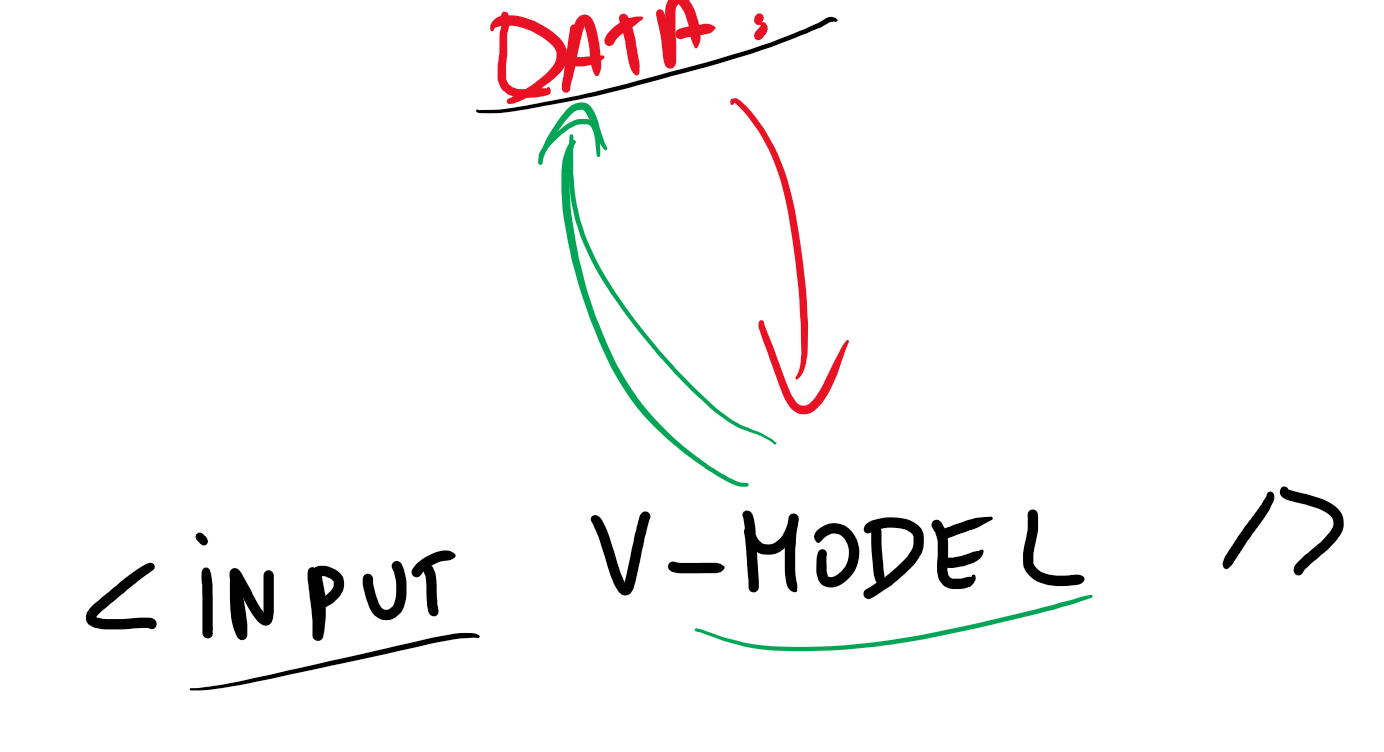 DATA:
<iNPUT V-MODEL />